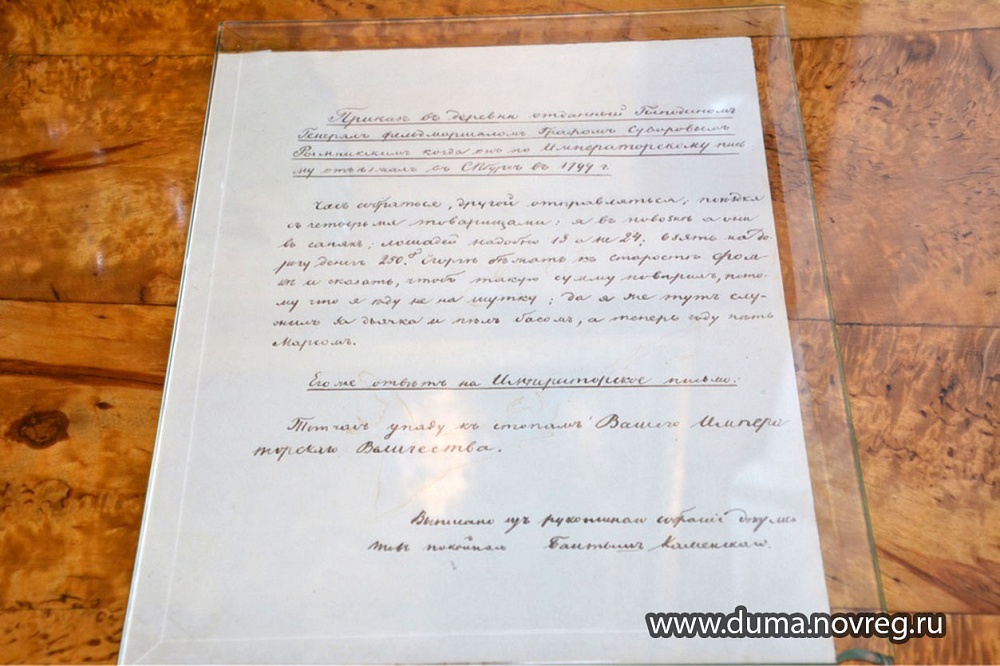 Приказъ въ деревню отданный Господиномъ
Генералъ фельдмаршаломъ Графомъ Суворовымъ
Рымникскимъ когда онъ по Императорскому пись
му отъѣзжалъ въ СПбургъ въ 1799 г.
Часъ собраться, другой отправляться; поѣздка
съ четырьмя товарищами: я въ повозкѣ а они
въ саняхъ; лошадей надобно 18 а не 24. взять на до-
рогу денегъ 250. р Егоркѣ бѣжать къ старостѣ Фом-
кѣ и сказать, чтобъ такую сумму повѣрилъ, пото-
му что я ѣду не на шутку; да я же тутъ слу-
жилъ за дьячка и пѣлъ басомъ, а теперь ѣду пѣть
Марсомъ.
Его же отвѣтъ на Императорское письмо:
Тотчасъ упаду къ стопамъ Вашего Импера
торскаго Величества.
Выписано изъ рукописнаго собранiя докумен
покойнаго Бантышъ Каменскаго.
www.duma.novreg.ru